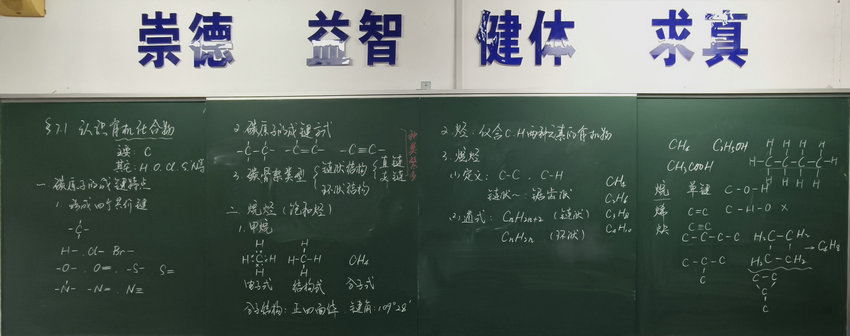 崇德 益智 健体 求真
§7.1 认识有机化合物
主要: C
其它: H.O.Cl.S.N等
一 碳原子的成键特点
1. 形成四个共价键
-C-
H- . Cl- Br-
-O- . O= . -S- S=
-N- -N= . N≡
2. 碳原子的成键方式
-C-C- -C=C- -C≡C-
3. 碳骨架类型 { 链状结构 { 直链 支链
环状结构
种类繁多
二. 烷烃 (饱和烃)
1. 甲烷
H H
H:C:H H-C-H CH₄
H H
电子式 结构式 分子式
分子结构: 正四面体. 键角: 109°28′
2. 烃: 仅含C.H两种元素的有机物
3. 烷烃
(1) 定义: C-C . C-H
链状~ 锯齿状
(2) 通式: CnH2n+2 (链状)
CnH2n (环状)
CH₄
C₂H₆
C₃H₈
C₄H₁₀
CH₄ C₂H₅OH
CH₃COOH
H H H H
H-C-C-C-C-H
H H H H
烷 单键 C-O-H
烯 C=C C-H-O ×
炔 C≡C
C-C-C-C
C-C-C
C
H₂C-CH₂
H₂C-CH₂
→ C₄H₈
C
C C
C